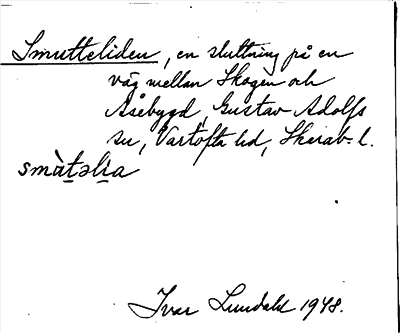 Smutteliden, en sluttning på en
väg mellan Skogen och
Åsebygd, Gustav Adolfs
sn, Vartofta hd, Skarab. l.
smàt̠əli̠a
Ivar Lundahl 1948.